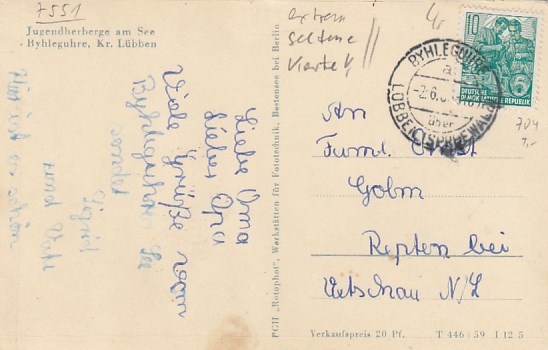 7551
Jugendherberge am See
Byhleguhre, Kr. Lübben
extrem
seltene
Karte!!
Liebe Oma
Lieber Opa
Viele Grüße vom
Byhleguhrer See
sendet
Sigrid
und
Hier ist es schön
PGH "Rotophot", Werkstätten für Fototechnik, Bestensee bei Berlin
10
5
DEUTSCHE
DEMOKRATISCHE REPUBLIK
BYHLEGUHRE
über
LÜBBEN (SPREEWALD)
7,-
An
Faml. Ernst
Golm
Repten bei
Vetschau N/L
Verkaufspreis 20 Pf. T 446/59 I 12 5